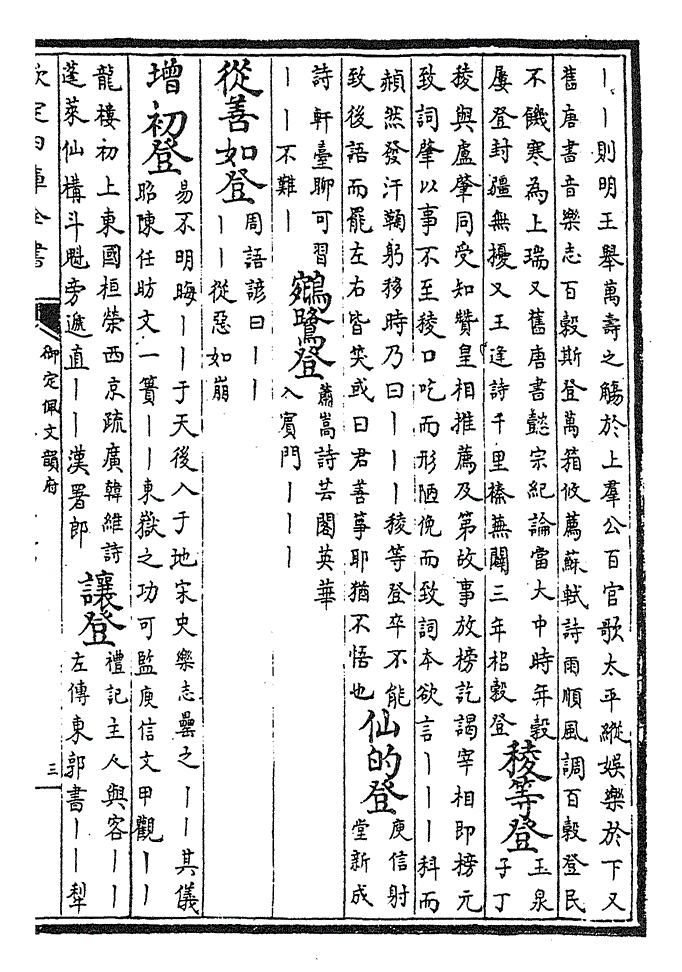 丨丨則明王舉萬壽之觴於上羣公百官歌太平縱娛樂於下又
舊唐書音樂志百穀斯登萬箱攸薦蘇軾詩雨順風調百穀登民
不饑寒為上瑞又舊唐書懿宗紀論當大中時年穀
屢登封疆無擾又王逵詩千里榛蕪闢三年稻穀登
稜等登
玉泉
子丁
稜與盧肇同受知贊皇相推薦及第故事放榜訖謁宰相即榜元
致詞肇以事不至稜口吃而形陋俛而致詞本欲言丨丨丨科而
赬然發汗鞠躬移時乃曰丨丨丨稜等登卒不能
致後語而罷左右皆笑或曰君善箏耶猶不悟也
仙的登
庾信射
堂新成
詩軒臺聊可習
丨丨不難丨
鵷鷺登
蕭嵩詩芸閣英華
入賓門丨丨丨
從善如登
周語諺曰丨丨
丨丨從惡如崩
增 初登
易不明晦丨丨于天後入于地宋史樂志罍之丨丨其儀
昭陳任昉文一簣丨丨東嶽之功可監庾信文甲觀丨丨
龍樓初上東國桓榮西京疏廣韓維詩
蓬萊仙構斗魁旁遞直丨丨漢署郎
讓登
禮記主人與客丨丨
左傳東郭書丨丨犁
欽定四庫全書
御定佩文韻府
三